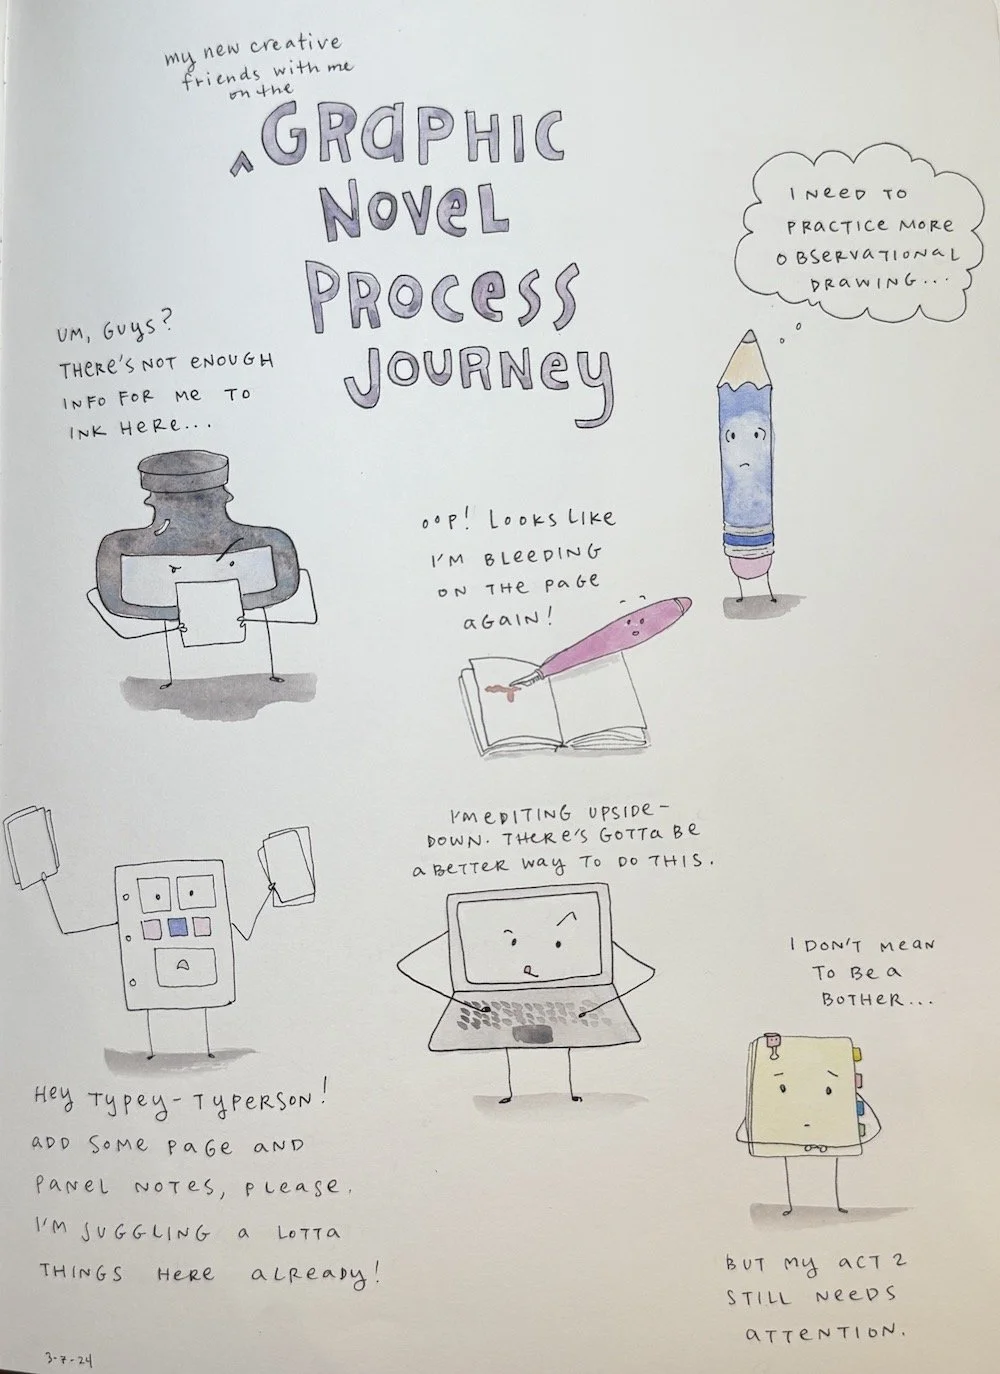 my new creative
friends with me
on the
^ GRAPHIC
NOVEL
PROCESS
JOURNEY
I NEED TO
PRACTICE MORE
OBSERVATIONAL
DRAWING...
UM, GUYS?
THERE'S NOT ENOUGH
INFO FOR ME TO
INK HERE...
OOP! LOOKS LIKE
I'M BLEEDING
ON THE PAGE
AGAIN!
I'M EDITING UPSIDE-
DOWN. THERE'S GOTTA BE
A BETTER WAY TO DO THIS.
I DON'T MEAN
TO BE A
BOTHER...
HEY TYPEY-TYPERSON!
ADD SOME PAGE AND
PANEL NOTES, PLEASE.
I'M JUGGLING A LOTTA
THINGS HERE ALREADY!
BUT MY ACT 2
STILL NEEDS
ATTENTION.
3-7-24